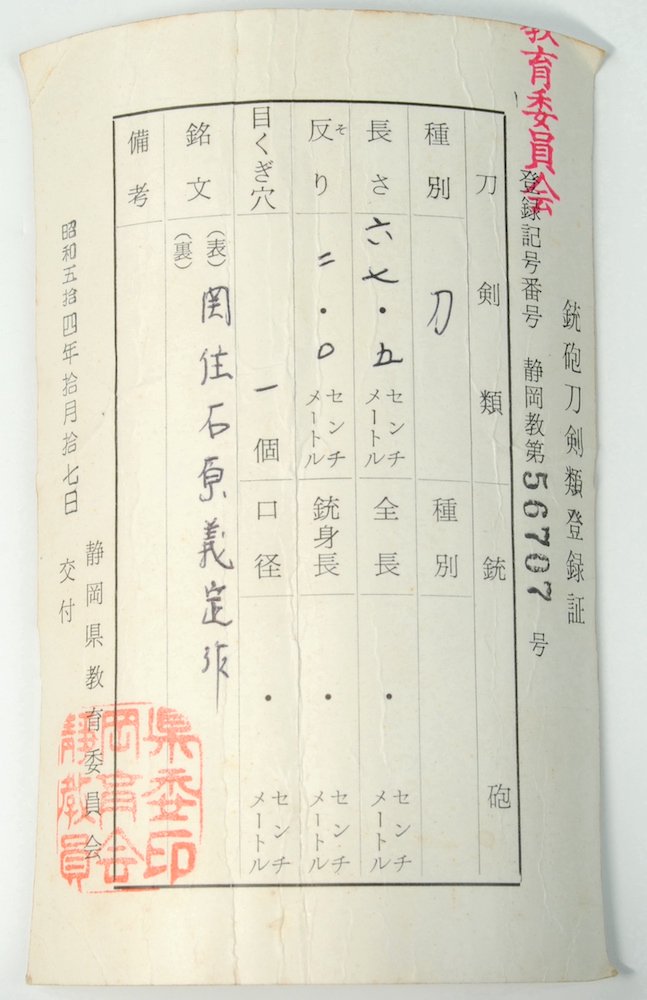 銃砲刀剣類登録証
教育委員会
登録記号番号 静岡教第56707号
刀剣類 銃砲
種別 刀 種別
長さ 六七・五 センチメートル 全長 ・ センチメートル
反り 二・〇 センチメートル 銃身長 ・ センチメートル
そ
目くぎ穴 一個 口径 ・ センチメートル
銘文 (表) 関住石原義定作
(裏)
備考
静岡県教育委員会
昭和五拾四年拾月拾七日 交付
県委印
岡育会
静教員